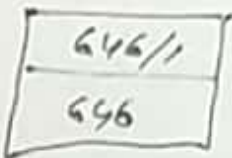 646/1
646